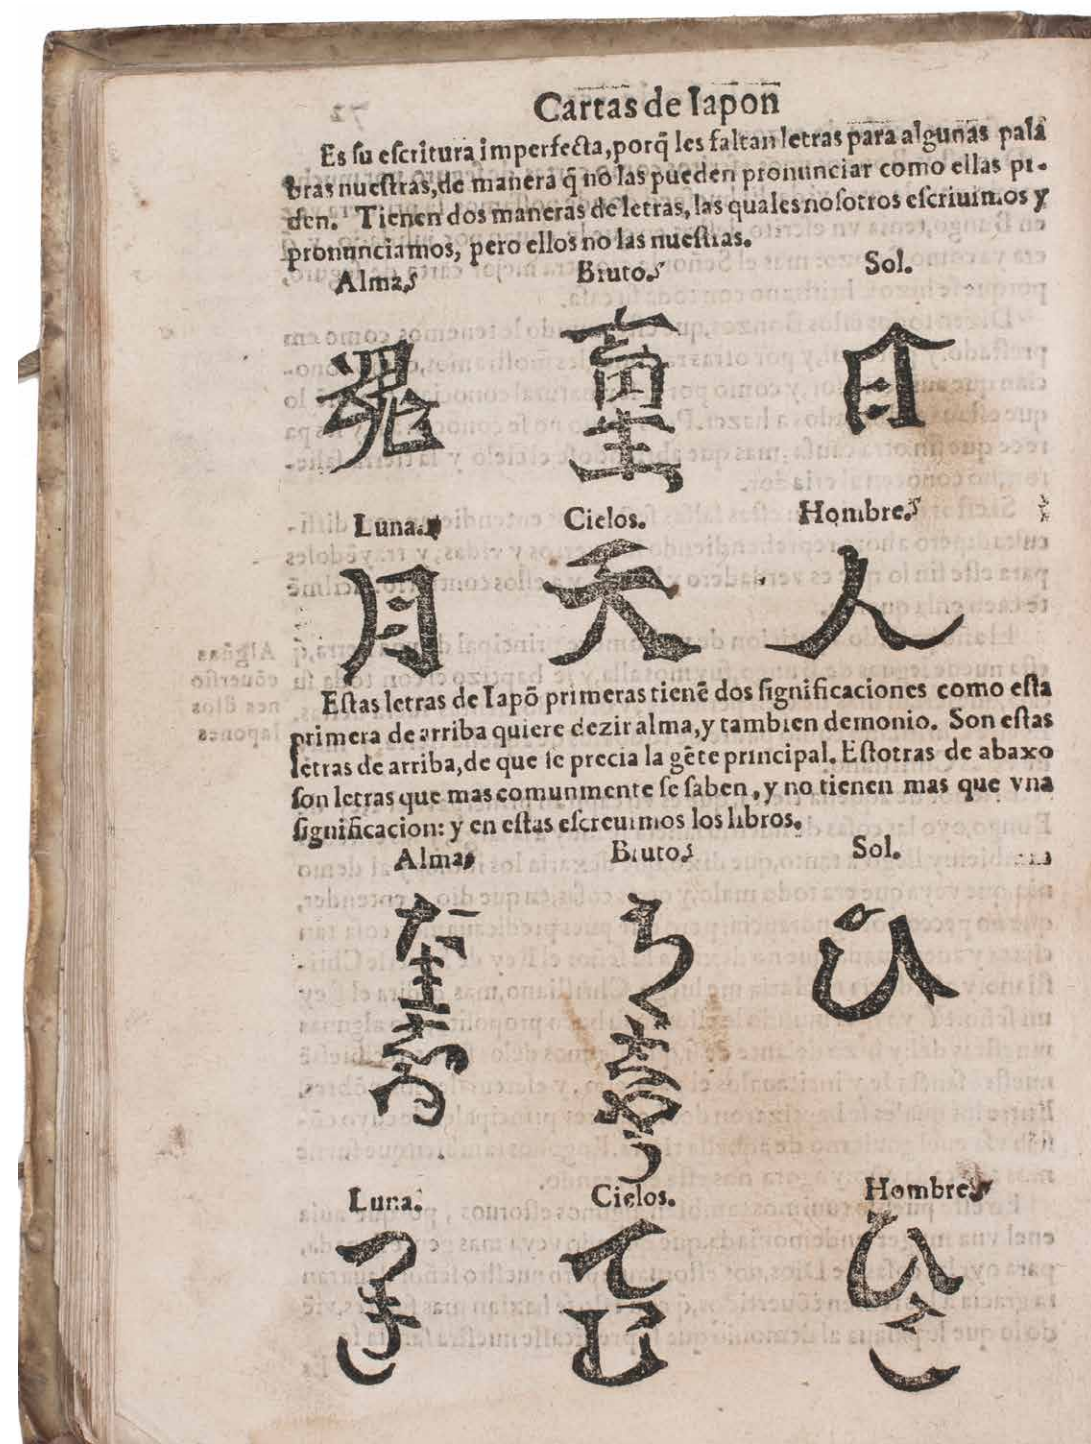 Cartas de Iapon
Es su escritura imperfecta, porq̃ les faltan letras para algunas pala
bras nuestras, de manera q̃ no las pueden pronunciar como ellas pi-
den. Tienen dos maneras de letras, las quales nosotros escriuimos y
pronunciamos, pero ellos no las nuestras.
Alma. Bruto. Sol.
魂 畜生 日
Luna. Cielos. Hombre.
月 天 人
Estas letras de Iapõ primeras tienẽ dos significaciones como esta
primera de arriba quiere dezir alma, y tambien demonio. Son estas
letras de arriba, de que se precia la gẽte principal. Estotras de abaxo
son letras que mas comunmente se saben, y no tienen mas que vna
significacion: y en estas escreuimos los libros.
Alma Bruto. Sol.
ひ
Luna. Cielos. Hombre.
つき てむ ひと
Algũas
cõuersio
nes ðlos
Iapones